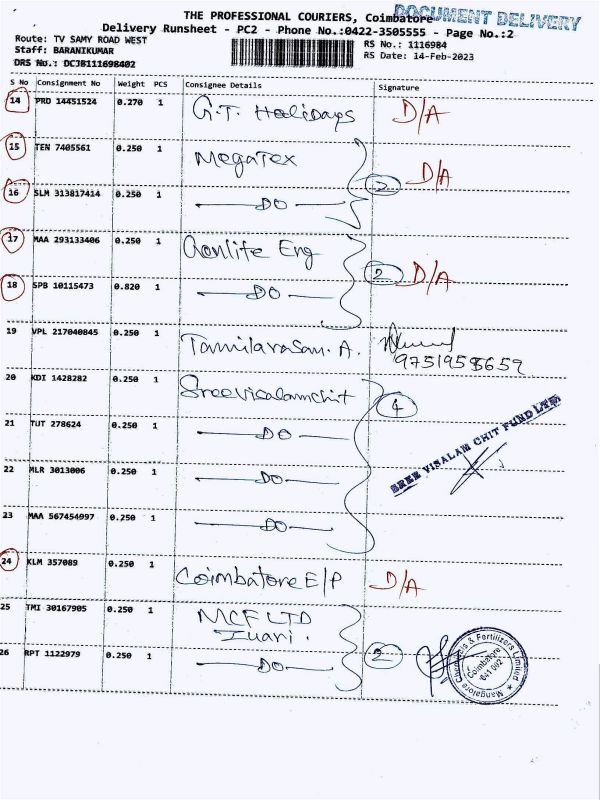 THE PROFESSIONAL COURIERS, Coimbatore
DOCUMENT DELIVERY
Delivery Runsheet - PC2 - Phone No.:0422-3505555 - Page No.:2
Route: TV SAMY ROAD WEST
RS No.: 1116984
Staff: BARANIKUMAR
RS Date: 14-Feb-2023
DRS No.: DCJB111698402
S No Consignment No Weight PCS Consignee Details Signature
14 PRD 14451524 0.270 1 G.T. Holidays D/A
15 TEN 7405561 0.250 1 Megatex D/A
16 SLM 313817414 0.250 1 DO 2
17 MAA 293133406 0.250 1 Aonlife Eng
18 SPB 10115473 0.820 1 DO 2 D/A
19 VPL 217040845 0.250 1 Tamilarasan. A.
20 KDI 1428282 0.250 1 Sreevisalamchit 4
21 TUT 278624 0.250 1 DO
SREE VISALAM CHIT FUND LTD
22 MLR 3013006 0.250 1 DO
23 MAA 567454997 0.250 1 DO
24 KLM 357089 0.250 1 Coimbatore E/P D/A
25 TMI 30167905 0.250 1 MCF LTD
Zuari.
26 RPT 1122979 0.250 1 DO 2
Mangalore Chemicals & Fertilizers Limited
Coimbatore
641 002